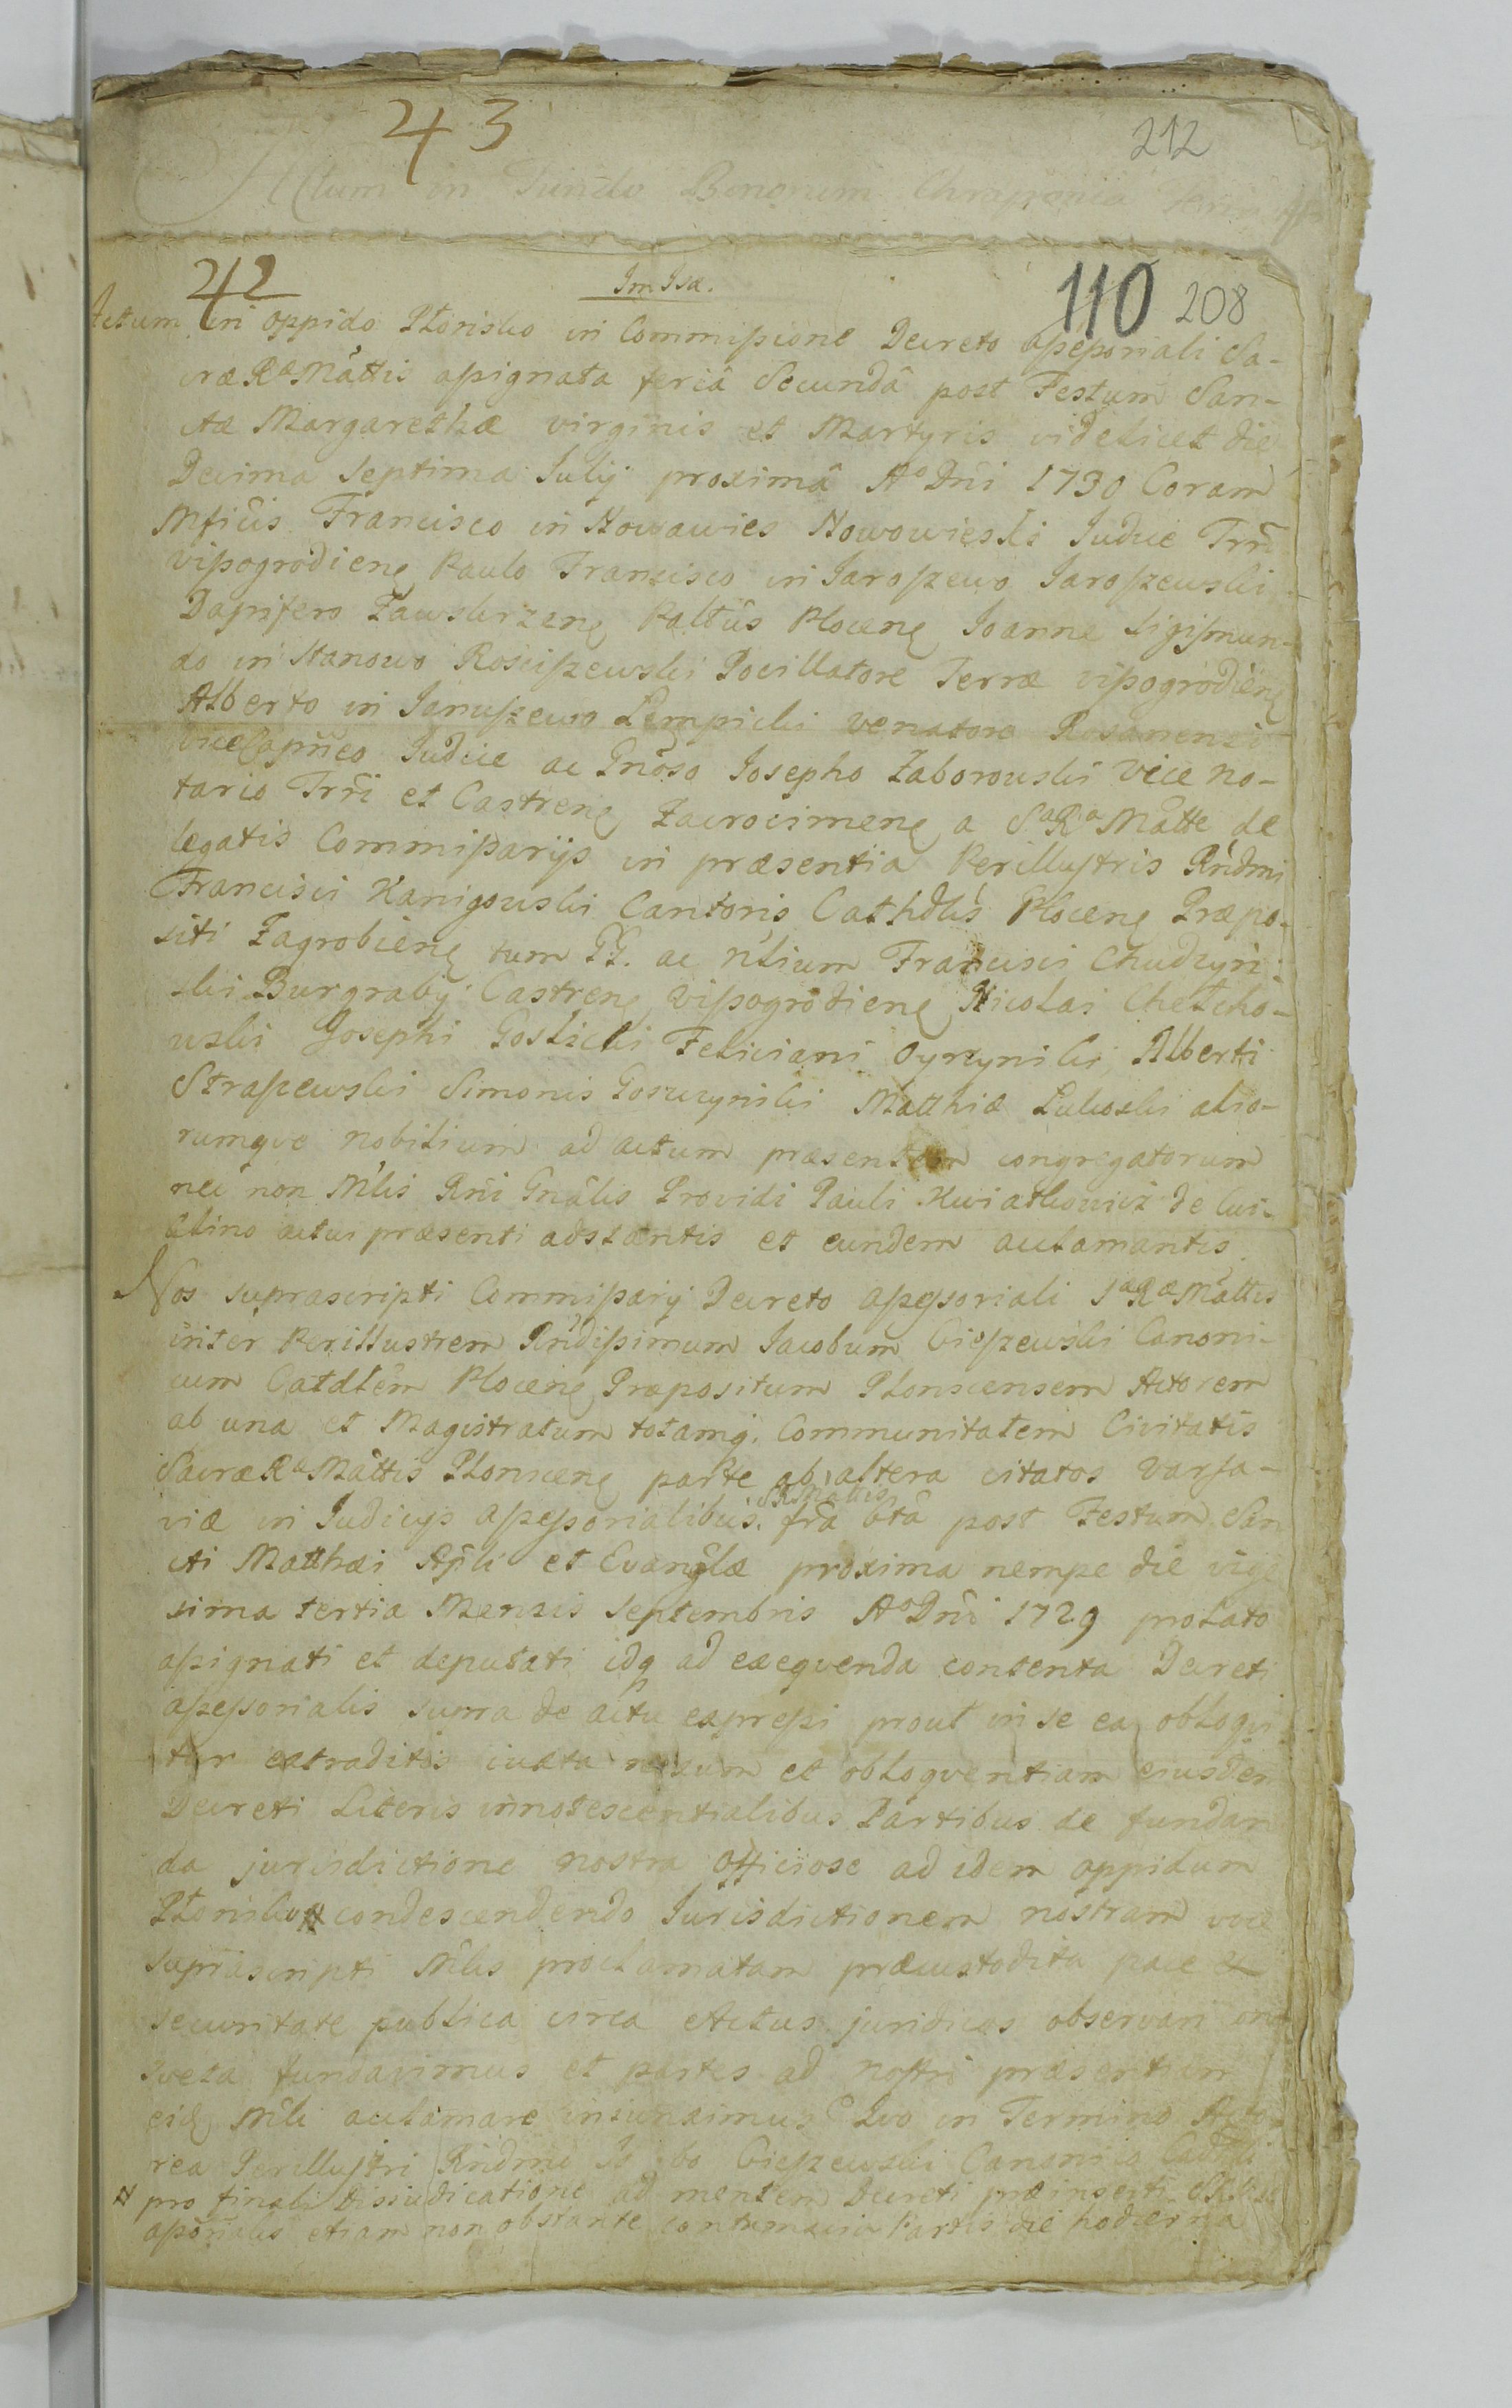 43
212
Actum in Fundo Bonorum
42
Im Isæ.
110 208
Actum in oppido Płonsko in Commissione Decreto assessoriali Sa-
cræ Ræ Mãttis assignata feriâ Secundâ post Festum San-
ctæ Margarethæ virginis et Martyris videlicet die
Decima Septima Julij proximâ Aº Dni 1730 Coram
Mficis Francisco in Nowawies Nowowieski Judice Trri
vissogrodiens Paulo Francisco in Jaroszewo Jaroszewski
Dapifero Zawskrzens Paltûs Plocens Joanne Sigismun-
do in Stanowo Rosciszewski Pocillatore Terræ vissogrodiens
Alberto in Januszewo Lempicki venatore Rosanensi
vice Capneo Judice ac Gnoso Josepho Zaborowski Vice no-
tario Trri et Castrens Zacrocimens a Sa Ra Mãtte de
legatis Commissarijs in præsentia Perillustris Rndmi
Francisci Kanigowski Cantoris Cathdlis Plocens Præpo-
siti Zagrobiens tum GG. ac nlium Francisci Chudzyn-
ski Burgrabij Castrens vissogrodiens Nicolai Chełcho-
wski Josephi Goslicki Feliciani Alberti
Straszewski Simonis Goszczynski Matthiæ Lukoski alio-
rumqve nobilium ad actum præsentem congregatorum
nec non Mlis Rni Gnâlis Providi Pauli Kwiatkowicz de
actui præsenti adstantis et eundem aclamantis
Nos suprascripti Commissarij Decreto assessoriali Sæ Ræ Mãttis
inter Perillustrem Rndissimum Jacobum Cieszewski Canoni-
cum Catdlem Plocens Præpositum Plonscensem Actorem
ab una et Magistratum totamq. Communitatem Civitatis
Sacræ Ræ Mãttis Plonscens parte ab altera citatos Varsa-
viæ in Judicijs assessorialibus. SRMattis fra 6ta post Festum San
cti Matthæi Apli et Evanglæ proxima nempe die vige
sima tertia Mensis Septembris Aº Dni 1729 prolato
assignati et deputati idq ad exeqvenda contenta Decreti
assessorialis supra de actu expressi prout in se ea obloqvi
tur extraditis iuxta nexum et obloqventiam eiusdem
Decreti Literis innotescentialibus Partibus de fundan
da jurisdictione nostra officiose ad idem oppidum
Płonsko # condescendendo Jurisdictionem nostram voce
suprascripti Mlis proclamatam præcustodita pace et
securitate publica circa Actus juridicos observari con
sveta fundavimus et partes ad nostri præsentiam
eid Mli aclamare iniunximus Qvo in Termino Acto-
rea Perillustri Rndmo Cieszewski Canonico
# pro finali Dissudicatione ad mentem Decreti præinserti
etiam non obstante contumacia Partis die hodierna